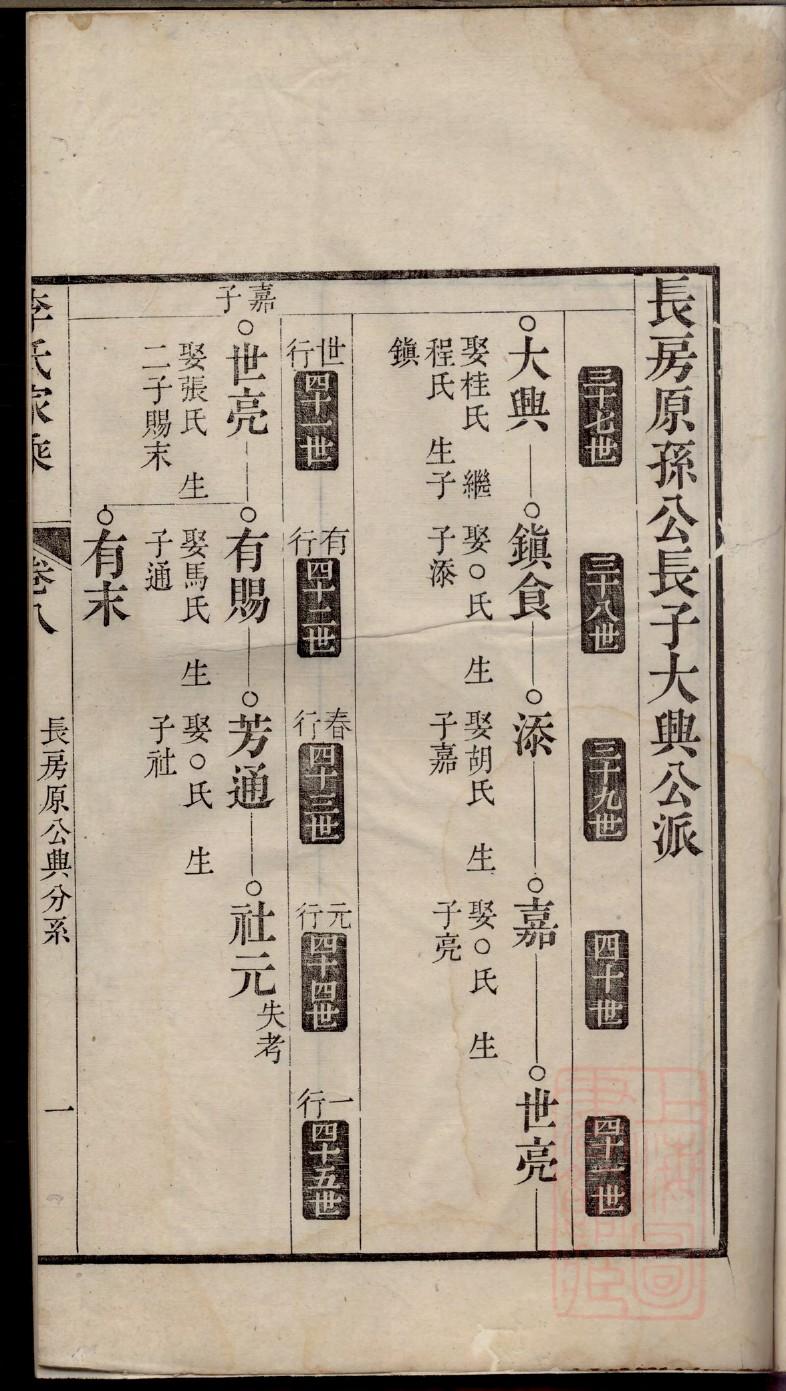 長房原孫公長子大興公派
三十七世
三十八世
三十九世
四十世
四十一世
大興
娶桂氏　繼
程氏　生子
鎮
鎮食
娶○氏　生
子添
添
娶胡氏　生
子嘉
嘉
娶○氏　生
子亮
世亮
世行
四十一世
有行
四十二世
春行
四十三世
元行
四十四世
一行
四十五世
嘉子
世亮
娶張氏　生
二子賜末
有賜
娶馬氏　生
子通
芳通
娶○氏　生
子社
社元
失考
有末
李氏家乘
卷八
長房原公興分系
一